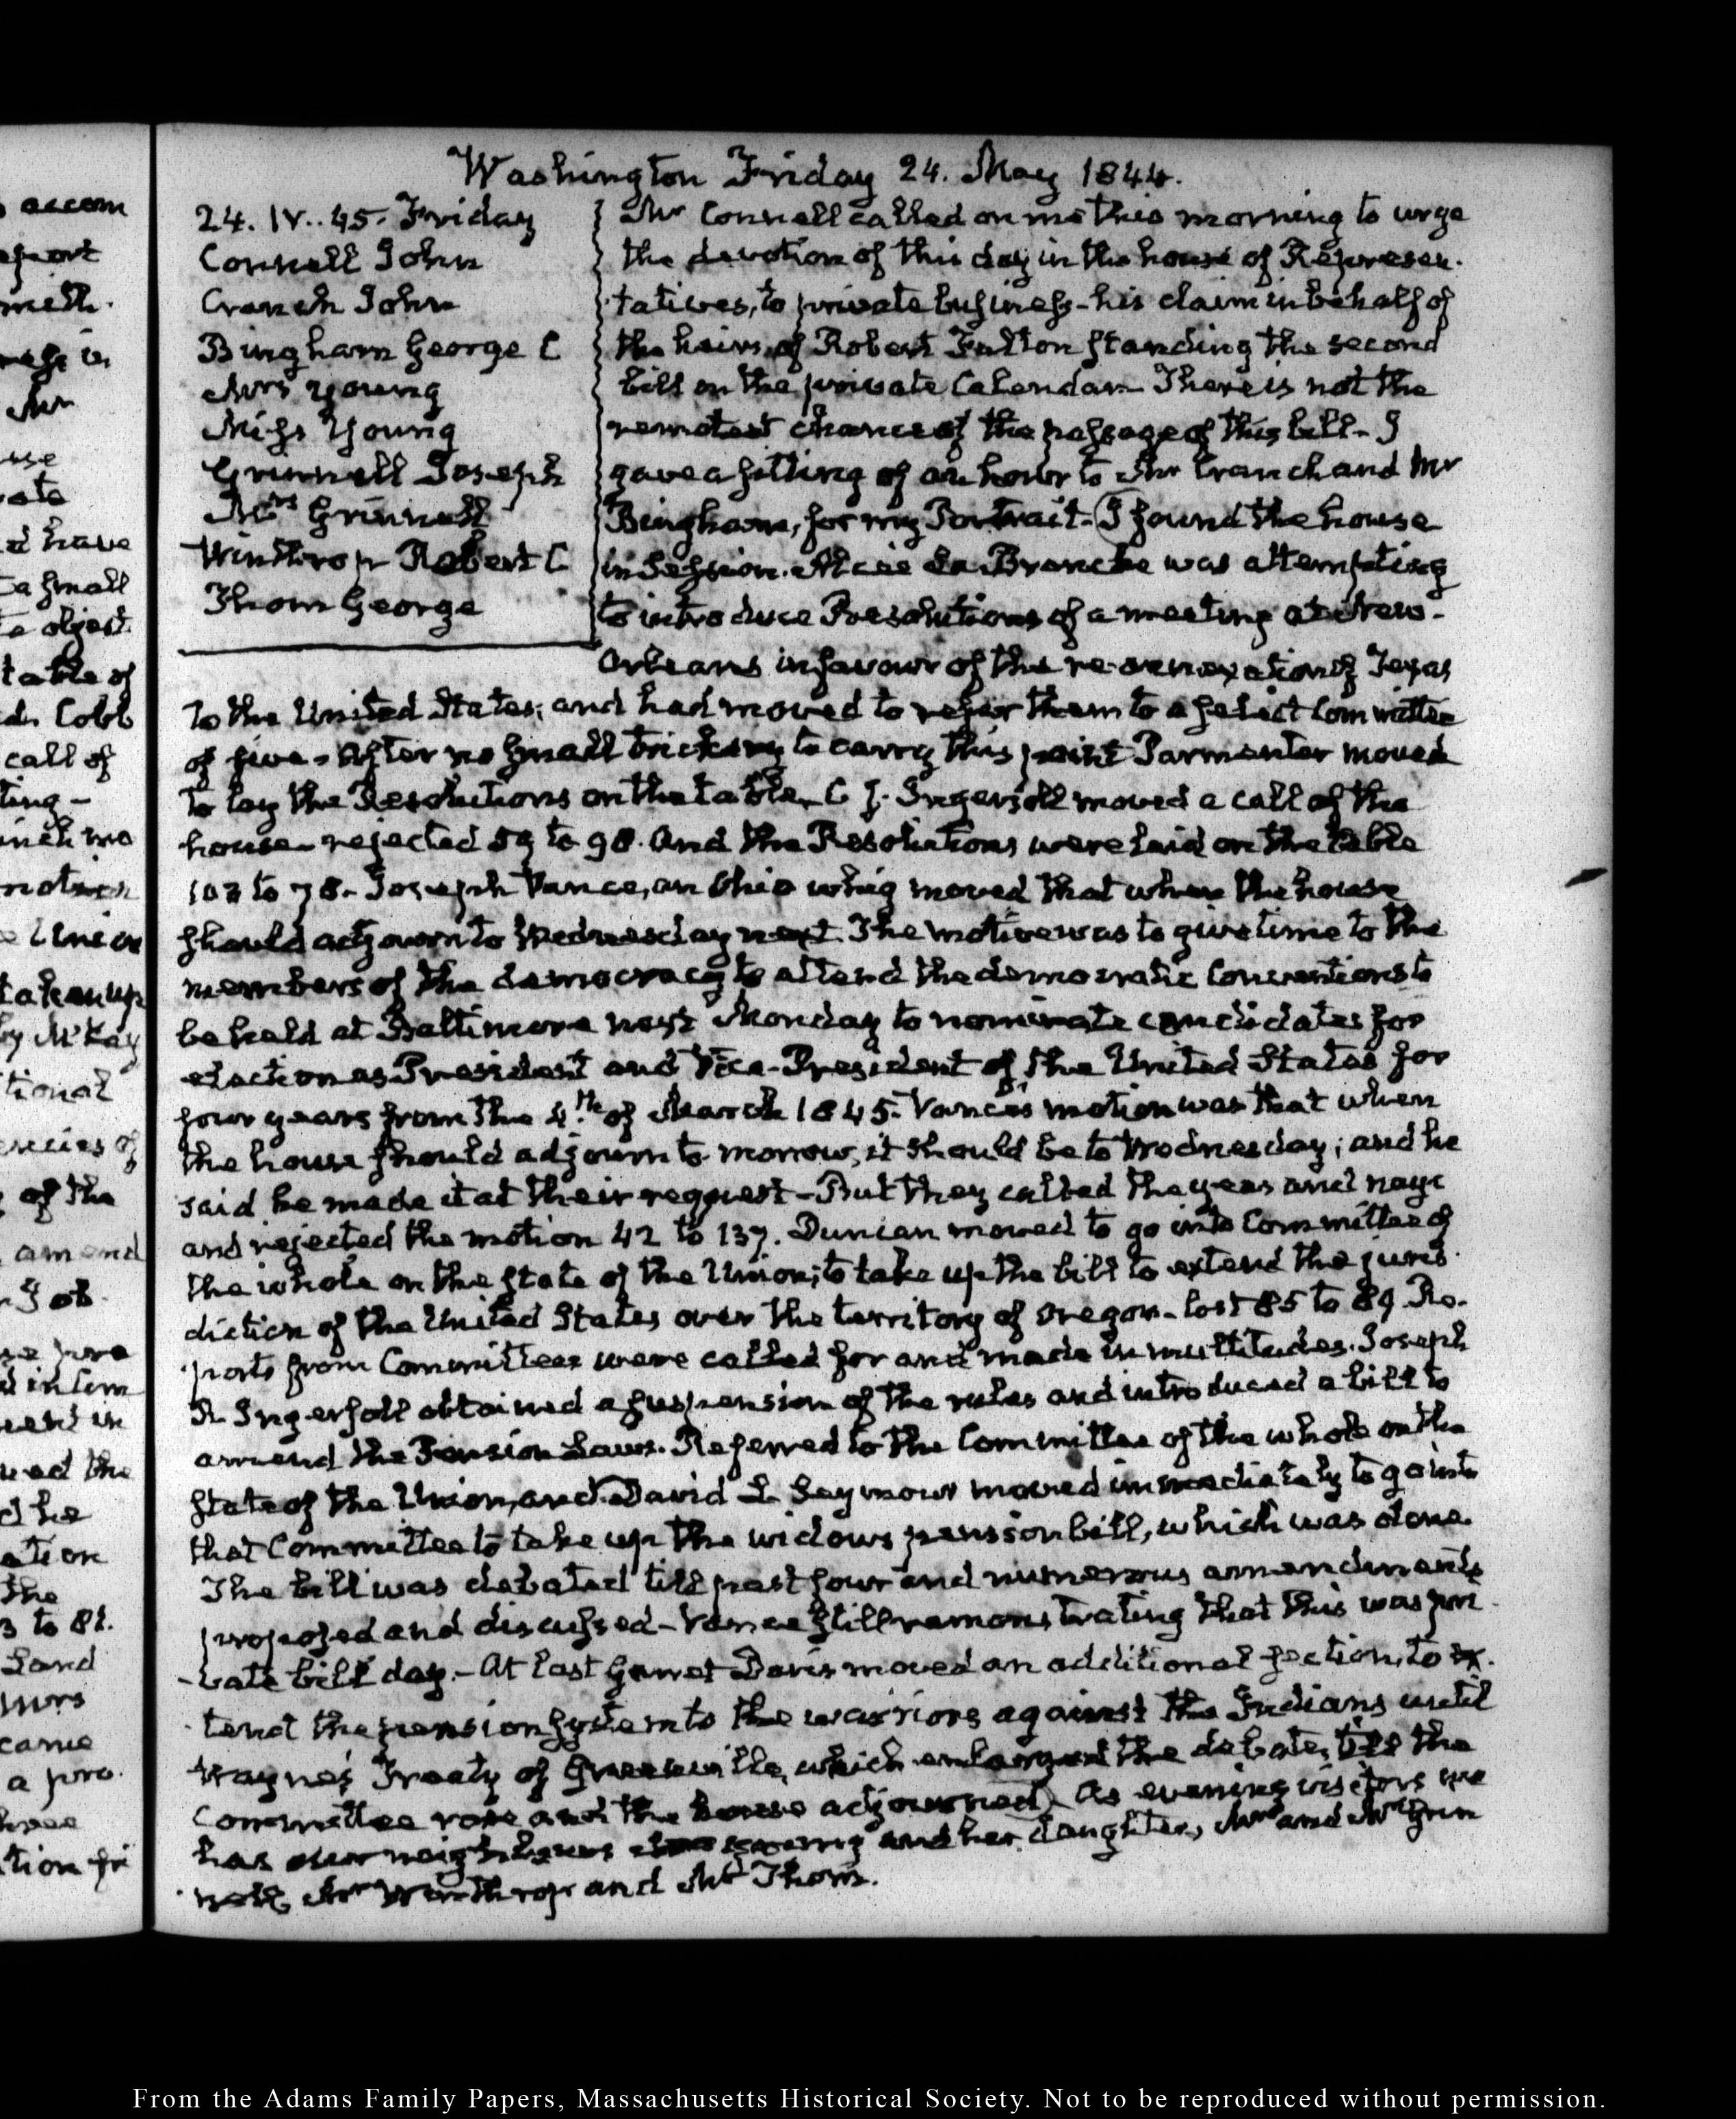 Washington Friday 24. May 1844.
24. IV..45. Friday
Connell John
Cranch John
Bingham George C
Mrs Young
Miss Young
Grinnell Joseph
Mrs Grinnell
Winthrop Robert C
Thom George
Mr Connell called on me this morning to urge
the devotion of this day in the house of Represen-
tatives, to private business - his claim in behalf of
the heirs of Robert Fulton standing the second
bill on the private Calendar - There is not the
remotest chance of the passage of this bill - I
gave a sitting of an hour to Mr Cranch and Mr
Bingham, for my Portrait. I found the house
in Session. Alcée La Branche was attempting
to introduce Resolutions of a meeting at New-
Orleans in favour of the re-annexation of Texas
to the United States; and had moved to refer them to a select Committee
of five - After no small trickery to carry this point Parmenter moved
to lay the Resolutions on the table - C. J. Ingersoll moved a call of the
house - rejected 59 to 98. And the Resolutions were laid on the table
103 to 78. Joseph Vance, an Ohio whig moved that when the house
should adjourn to Wednesday next. The motive was to give time to the
members of the democracy to attend the democratic Conventions to
be held at Baltimore next Monday to nominate candidates for
election as President and Vice-President of the United States for
four years from the 4th of March 1845. Vance's motion was that when
the house should adjourn to-morrow, it should be to Wednesday; and he
said he made it at their request - But they called the yeas and nays
and rejected the motion 42 to 137. Duncan moved to go into Committee of
the whole on the state of the Union; to take up the bill to extend the juris-
diction of the United States over the territory of Oregon - lost 85 to 89. Re-
ports from Committees were called for and made in multitudes. Joseph
R. Ingersoll obtained a suspension of the rules and introduced a bill to
amend the Pension Laws. Referred to the Committee of the whole on the
State of the Union, and David L. Seymour moved immediately to go into
that Committee to take up the widows pension bill, which was done.
The bill was debated till past four and numerous amendments
proposed and discussed - Vance still remonstrating that this was pri-
vate bill day. - At last Garret Davis moved an additional section, to ex-
tend the pension system to the warriors against the Indians until
Wayne's Treaty of Greenville, which enlarged the debate, till the
Committee rose and the house adjourned. As evening visitors we
had our neighbours Mrs Young and her daughter, Mr and Mrs Grin-
nell, Mr Winthrop and Mr Thom.
accom
have
a small
object
table of
Cobb
call of
ting -
Union
taken up
by McKay
tional
of the
amend
the
ation
the
3 to 81.
Land
came
a pro-
From the Adams Family Papers, Massachusetts Historical Society. Not to be reproduced without permission.